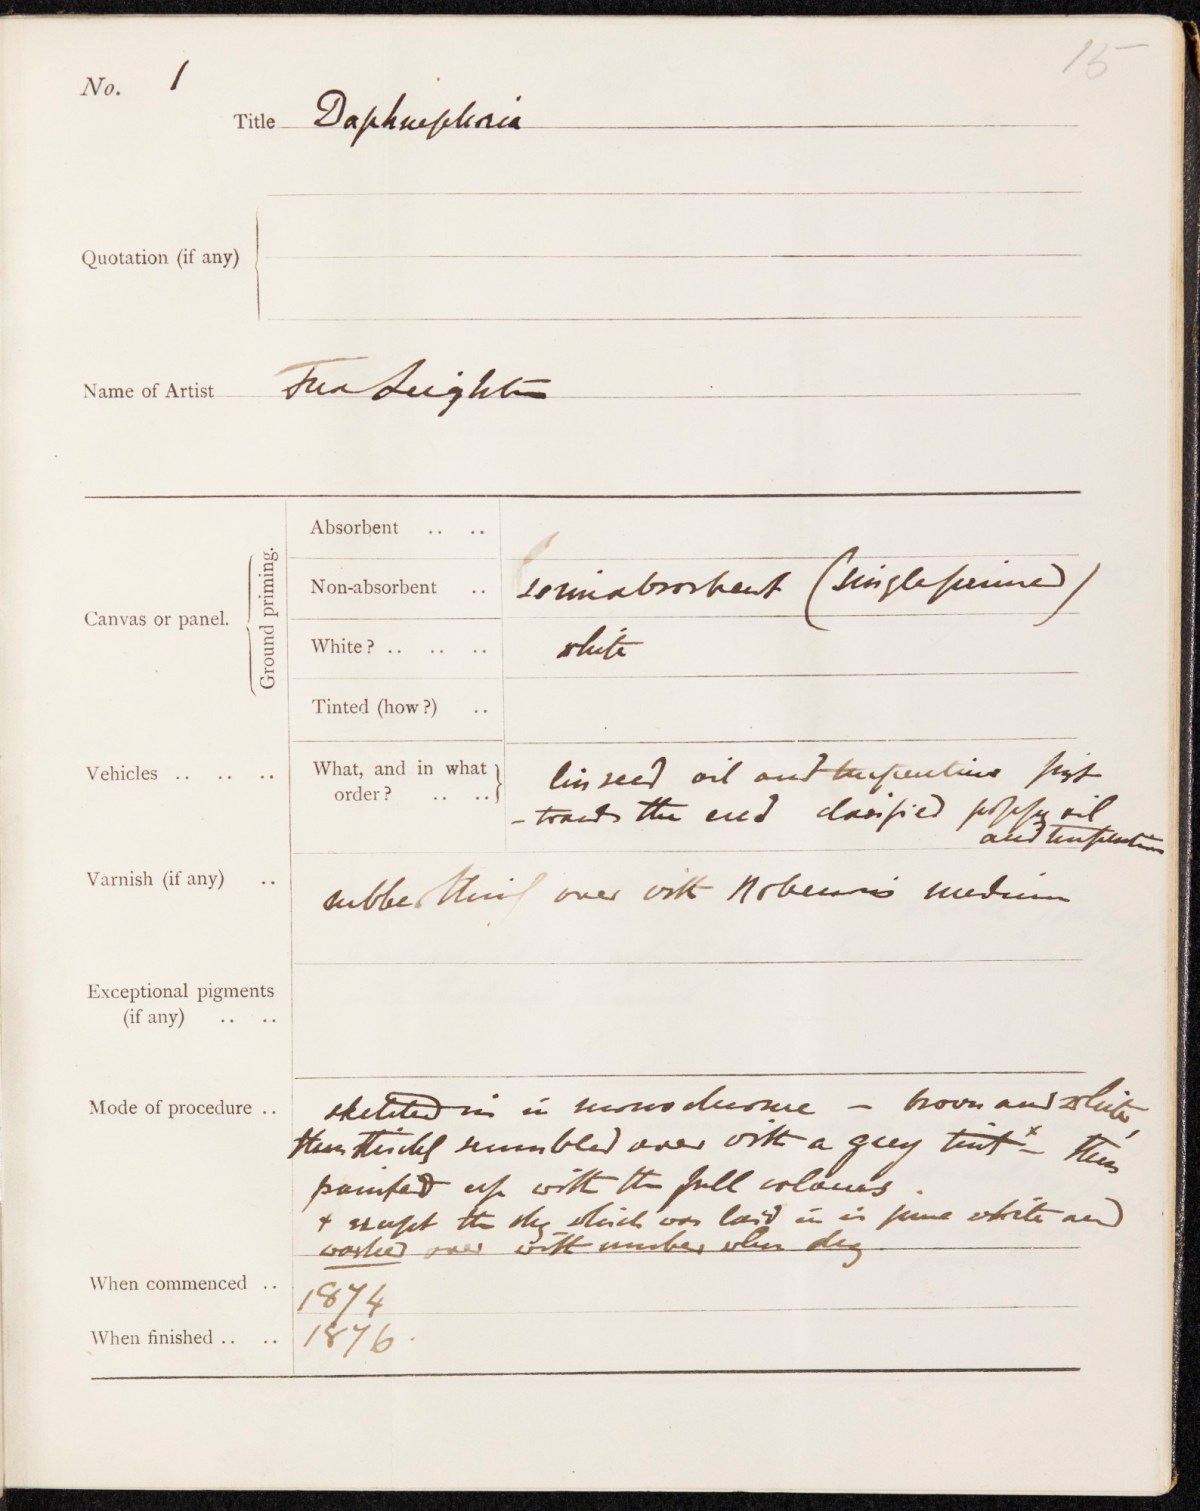 15
No. 1
Title Daphnephoria
Quotation (if any)
Name of Artist Fred Leighton
Absorbent .. ..
Canvas or panel. Ground priming. Non-absorbent .. semiabsorbent (single primed)
White? .. .. .. white
Tinted (how?) ..
Vehicles .. .. .. What, and in what order? .. .. linseed oil and turpentine first
- towards the end clarified poppy oil
and turpentine
Varnish (if any) .. rubbed thinly over with Roberson's medium
Exceptional pigments
(if any) .. ..
Mode of procedure .. sketched in in monochrome - brown and white,
then thickly scumbled over with a grey tint x - then
painted up with the full colours.
x except the sky which was laid in in pure white and
washed over with umber when dry
When commenced .. 1874
When finished .. .. 1876.